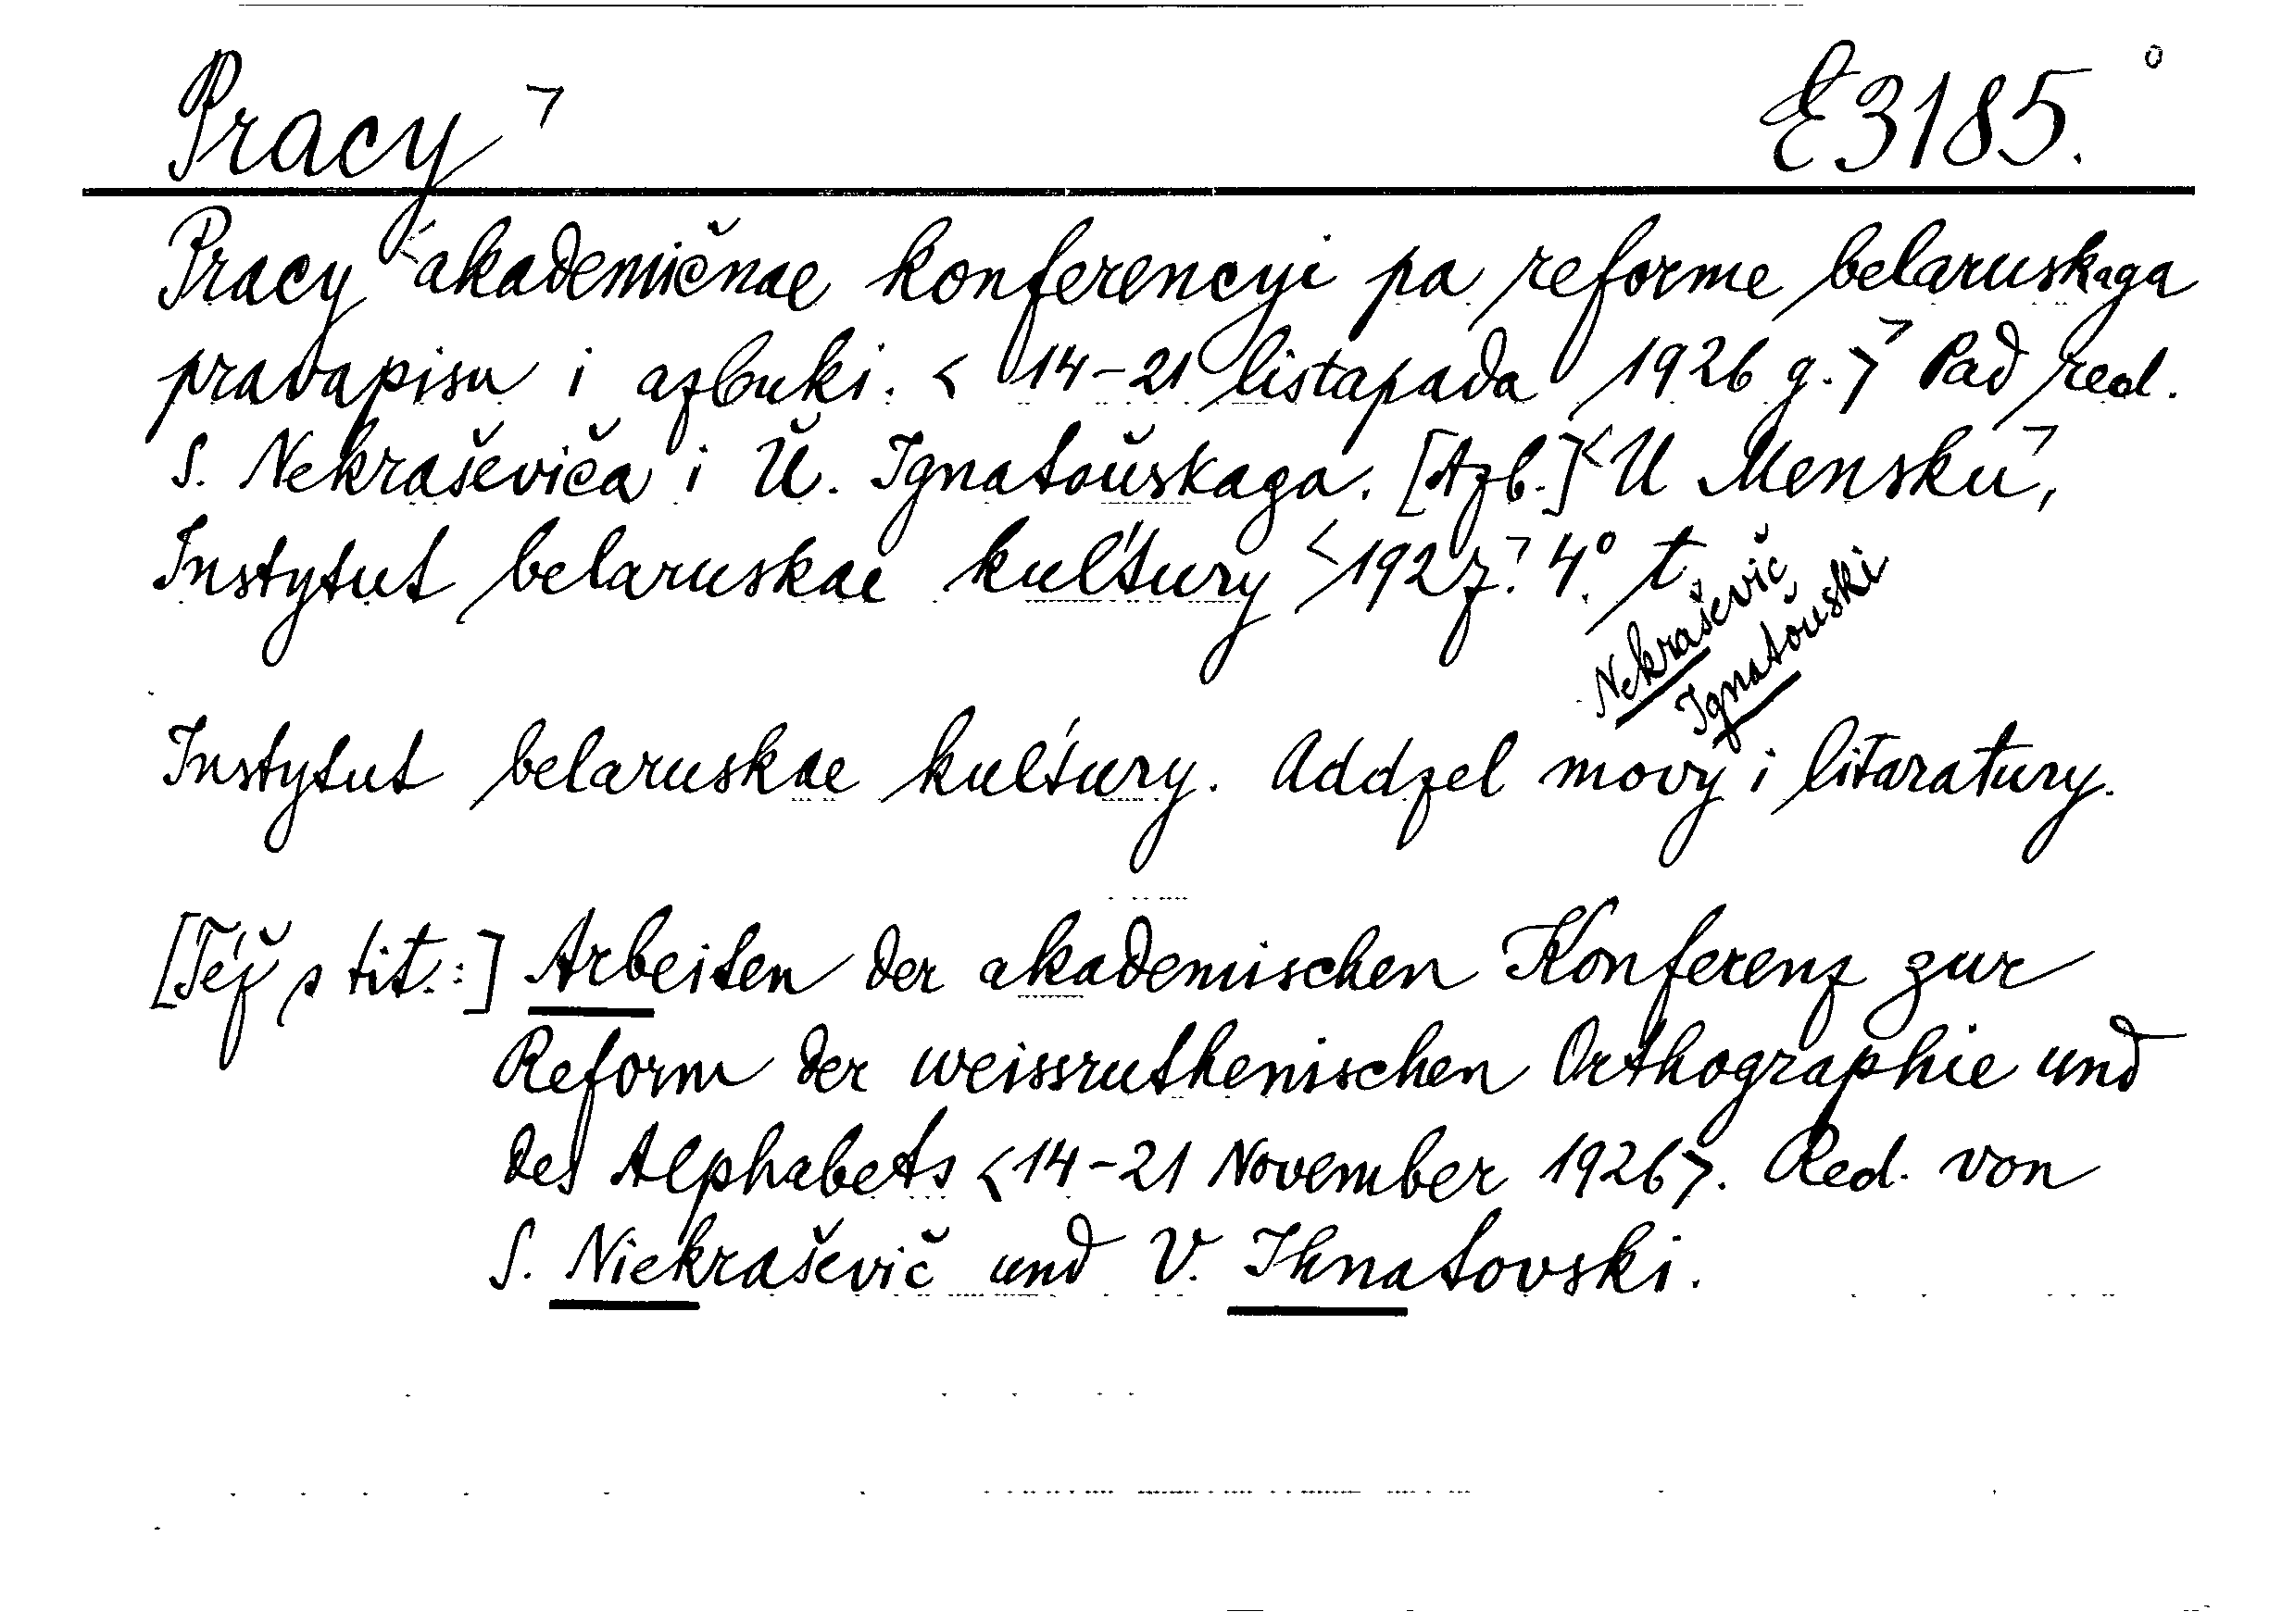 Pracy ㄱ E 3185. °
Pracy <akademičnae konferencyi pa reforme belaruskaga
pravapisu i azbuki. < 14-21 listapada 1926 g.>ㄱ Pad red.
S. Nekraševiča i Ŭ. Ignatoŭskaga. [Azb.] <U Menskuㄱ,
Instytut belaruskae kul'tury <1927.ㄱ 4°. t.
Nekraševič
Ignatoŭski
Instytut belaruskae kul'tury. Addzel movy i litaratury.
[Též s tit.:] Arbeiten der akademischen Konferenz zur
Reform der weissruthenischen Orthographie und
des Alphabets <14-21 November 1926>. Red. von
S. Niekraševič und V. Ihnatovski.